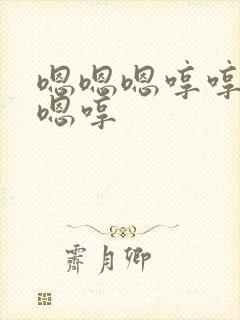 嗯嗯嗯哼哼
嗯哼
霽月卿